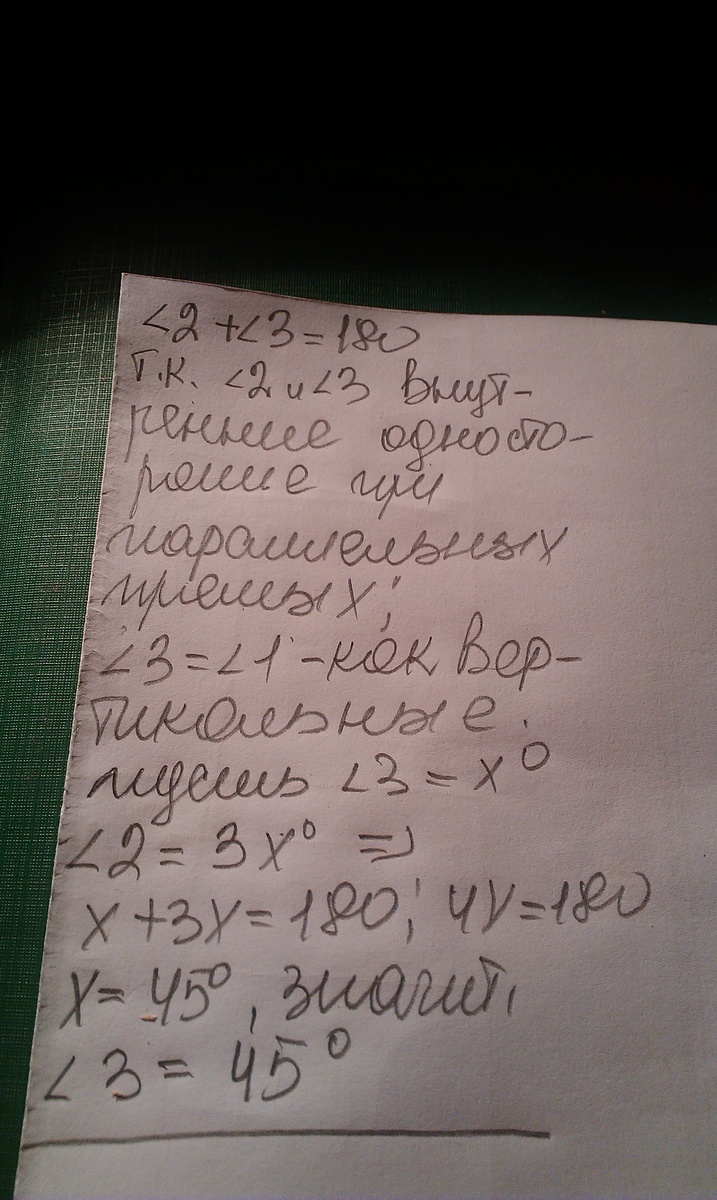 ∠2 +∠3 = 180
т.к. ∠2 и ∠3 внут-
ренние односто-
ронние при
параллельных
прямых;
∠3 = ∠1 - как вер-
тикальные.
пусть ∠3 = x°
∠2 = 3x° =>
x + 3x = 180; 4x = 180
x = 45°, значит,
∠3 = 45°